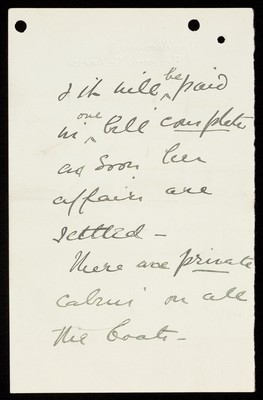 & it will be paid
in one bill complete
as soon her
affairs are
settled —
There are private
cabins on all
the boats —